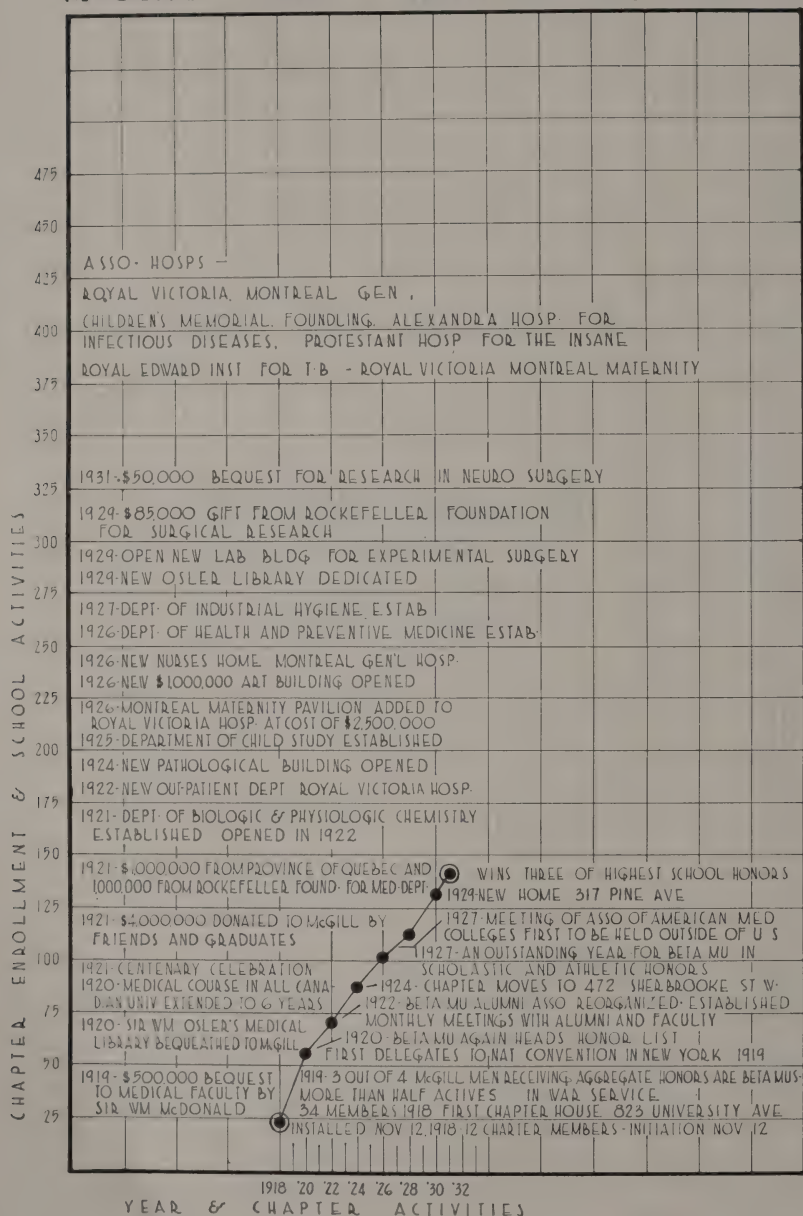 475
450
425
400
375
350
325
300
275
250
225
200
175
150
125
100
75
50
25
CHAPTER ENROLLMENT & SCHOOL ACTIVITIES
ASSO· HOSPS —
ROYAL VICTORIA, MONTREAL GEN.
CHILDREN'S MEMORIAL. FOUNDLING. ALEXANDRA HOSP· FOR
INFECTIOUS DISEASES, PROTESTANT HOSP FOR THE INSANE
ROYAL EDWARD INST FOR T·B - ROYAL VICTORIA MONTREAL MATERNITY
1931-$50,000 BEQUEST FOR RESEARCH IN NEURO SURGERY
1929-$85,000 GIFT FROM ROCKEFELLER FOUNDATION
FOR SURGICAL RESEARCH
1929-OPEN NEW LAB BLDG FOR EXPERIMENTAL SURGERY
1929-NEW OSLER LIBRARY DEDICATED
1927-DEPT· OF INDUSTRIAL HYGIENE ESTAB
1926-DEPT· OF HEALTH AND PREVENTIVE MEDICINE ESTAB·
1926-NEW NURSES HOME MONTREAL GEN'L HOSP·
1926-NEW $1,000,000 ART BUILDING OPENED
1926-MONTREAL MATERNITY PAVILION ADDED TO
ROYAL VICTORIA HOSP· AT COST OF $2,500,000
1925-DEPARTMENT OF CHILD STUDY ESTABLISHED
1924-NEW PATHOLOGICAL BUILDING OPENED
1922-NEW OUT-PATIENT DEPT ROYAL VICTORIA HOSP·
1921-DEPT· OF BIOLOGIC & PHYSIOLOGIC CHEMISTRY
ESTABLISHED OPENED IN 1922
1921-$1,000,000 FROM PROVINCE OF QUEBEC AND
1,000,000 FROM ROCKEFELLER FOUND· FOR MED·DEPT·
1921-$4,000,000 DONATED TO McGILL BY
FRIENDS AND GRADUATES
1921-CENTENARY CELEBRATION
1920-MEDICAL COURSE IN ALL CANA-
DIAN UNIV EXTENDED TO 6 YEARS
1920-SIR WM OSLER'S MEDICAL
LIBRARY BEQUEATHED TO McGILL
1919-$500,000 BEQUEST
TO MEDICAL FACULTY BY
SIR WM McDONALD
WINS THREE OF HIGHEST SCHOOL HONORS
1929-NEW HOME 317 PINE AVE
1927-MEETING OF ASSO OF AMERICAN MED
COLLEGES FIRST TO BE HELD OUTSIDE OF U S
1927-AN OUTSTANDING YEAR FOR BETA MU IN
SCHOLASTIC AND ATHLETIC HONORS
1924-CHAPTER MOVES TO 472 SHERBROOKE ST W·
1922-BETA MU ALUMNI ASSO REORGANIZED· ESTABLISHED
MONTHLY MEETINGS WITH ALUMNI AND FACULTY
1920-BETA MU AGAIN HEADS HONOR LIST
FIRST DELEGATES TO NAT CONVENTION IN NEW YORK 1919
1919-3 OUT OF 4 McGILL MEN RECEIVING AGGREGATE HONORS ARE BETA MUS·
MORE THAN HALF ACTIVES IN WAR SERVICE
34 MEMBERS 1918 FIRST CHAPTER HOUSE 823 UNIVERSITY AVE
INSTALLED NOV 12, 1918, 12 CHARTER MEMBERS-INITIATION NOV 12
1918 '20 '22 '24 '26 '28 '30 '32
YEAR & CHAPTER ACTIVITIES